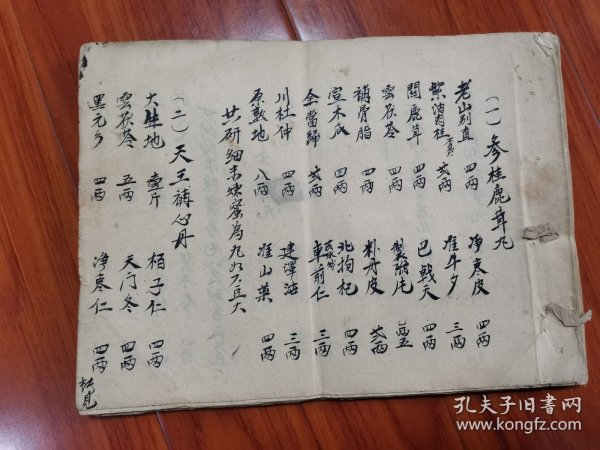 (一) 参桂鹿茸丸
老山别直 四两 净枣皮 四两
紫油肉桂 去粗皮 贰两 准牛夕 三两
関鹿茸 四两 巴戟天 四两
雲茯苓 四两 製附片 两五
補骨脂 四两 粉丹皮 贰两
宣木瓜 四两 北枸杞 四两
全當歸 贰两 車前仁 三两
川杜仲 四两 建澤泻 三两
原熟地 八两 准山药 四两
共研细末炼蜜為丸如大豆大
(二) 天王補心丹
大生地 壹斤 柏子仁 四两
雲茯苓 五两 天门冬 四两
黑元参 四两 净枣仁 四两
孔夫子旧书网
www.kongfz.com